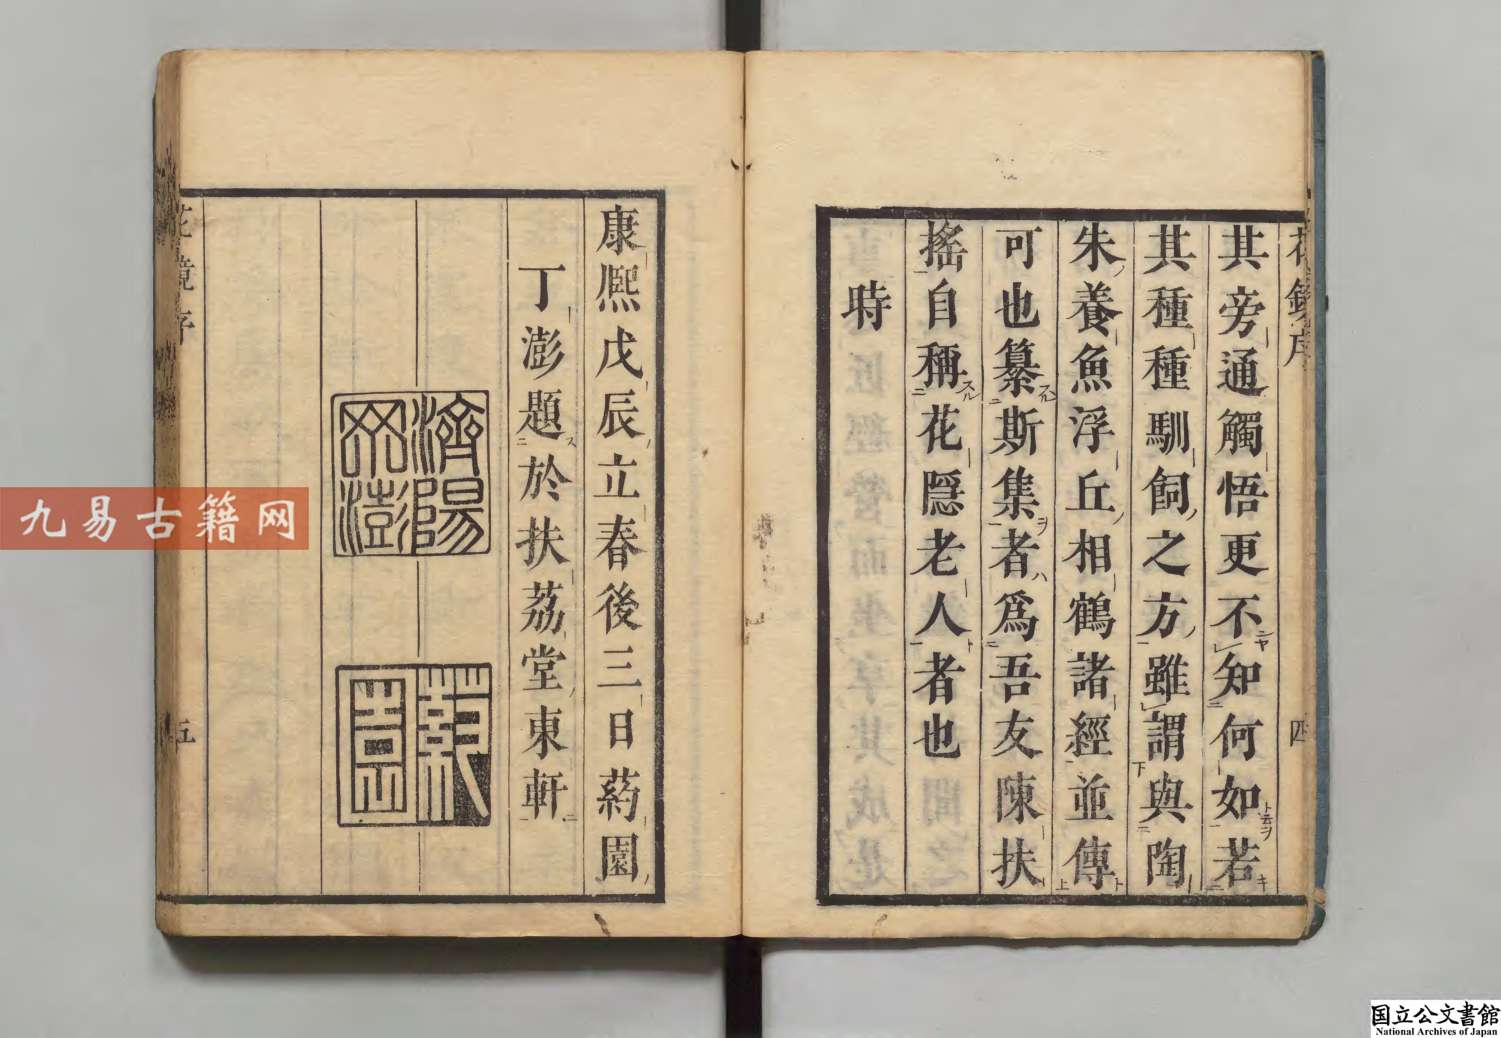 花鏡序
四
其旁通觸悟更不知何如若
其種種馴飼之方雖謂與陶
朱養魚浮丘相鶴諸經並傳
可也纂斯集者爲吾友陳扶
搖自稱花隱老人者也
時
康熙戊辰立春後三日葯園
丁澎題於扶荔堂東軒
濟陽
丁澎
葯園
花鏡序
五
九易古籍网
国立公文書館
National Archives of Japan